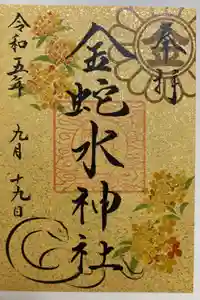 奉拝
金蛇水神社
令和五年
九月十九日